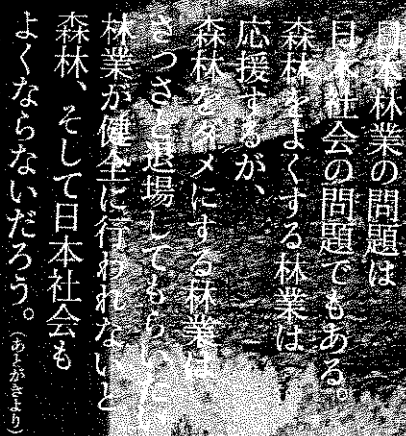 日本林業の問題は
日本社会の問題でもある。
森林をよくする林業は
応援するが、
森林をダメにする林業は
さっさと退場してもらいたい。
林業が健全に行われないと
森林、そして日本社会も
よくならないだろう。(あとがきより)